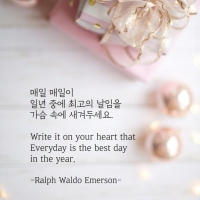 매일 매일이
일년 중에 최고의 날임을
가슴 속에 새겨두세요.
Write it on your heart that
Everyday is the best day
in the year.
-Ralph Waldo Emerson-